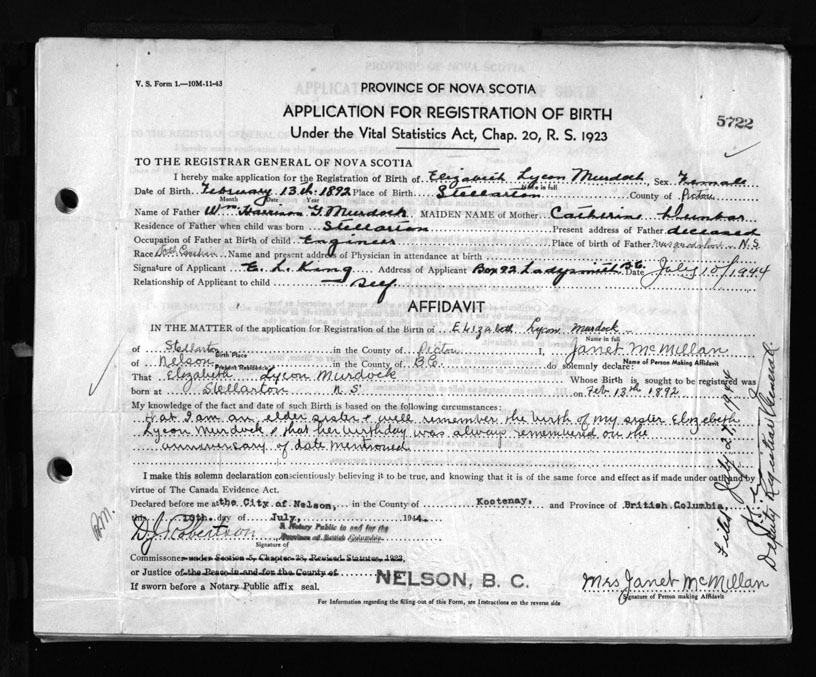 V. S. Form 1.—10M-11-43
PROVINCE OF NOVA SCOTIA
APPLICATION FOR REGISTRATION OF BIRTH
5722
Under the Vital Statistics Act, Chap. 20, R. S. 1923
TO THE REGISTRAR GENERAL OF NOVA SCOTIA
I hereby make application for the Registration of Birth of Elizabeth Lycon Murdoch Sex Female
Name in full
Date of Birth February 13th 1892 Place of Birth Stellarton County of Pictou
Month Date Year
Name of Father Wm Harrison G. Murdock MAIDEN NAME of Mother Catherine Dunbar
Residence of Father when child was born Stellarton Present address of Father deceased
Occupation of Father at Birth of child Engineer Place of Birth of Father N.S.
Race Name and present address of Physician in attendance at birth
Signature of Applicant E. L. King Address of Applicant Box 92 Ladysmith B.C. Date July 10/1944
Relationship of Applicant to child Self
AFFIDAVIT
IN THE MATTER of the application for Registration of the Birth of Elizabeth Lycon Murdock
Name in full
of Stellarton in the County of Pictou I, Janet McMillan
Birth Place Name of Person Making Affidavit
of Nelson in the County of B.C. do solemnly declare:
Present Residence
That Elizabeth Lycon Murdock Whose Birth is sought to be registered was
born at Stellarton N S on Feb 13th 1892
My knowledge of the fact and date of such Birth is based on the following circumstances:
that I am an elder sister & well remember the birth of my sister Elizabeth
Lycon Murdock & that her birthday was always remembered on the
anniversary of date mentioned
I make this solemn declaration conscientiously believing it to be true, and knowing that it is of the same force and effect as if made under oath and by
virtue of The Canada Evidence Act.
Declared before me at the City of Nelson, in the County of Kootenay, and Province of British Columbia,
this 10th day of July, 1944
D.J. Robertson A Notary Public in and for the
Province of British Columbia
Signature of
Commissioner under Section 5, Chapter 28, Revised Statutes, 1923,
or Justice of the Peace in and for the County of NELSON, B. C.
If sworn before a Notary Public affix seal.
Mrs Janet McMillan
Signature of Person making Affidavit
For Information regarding the filling out of this Form, see Instructions on the reverse side
Deputy Registrar General